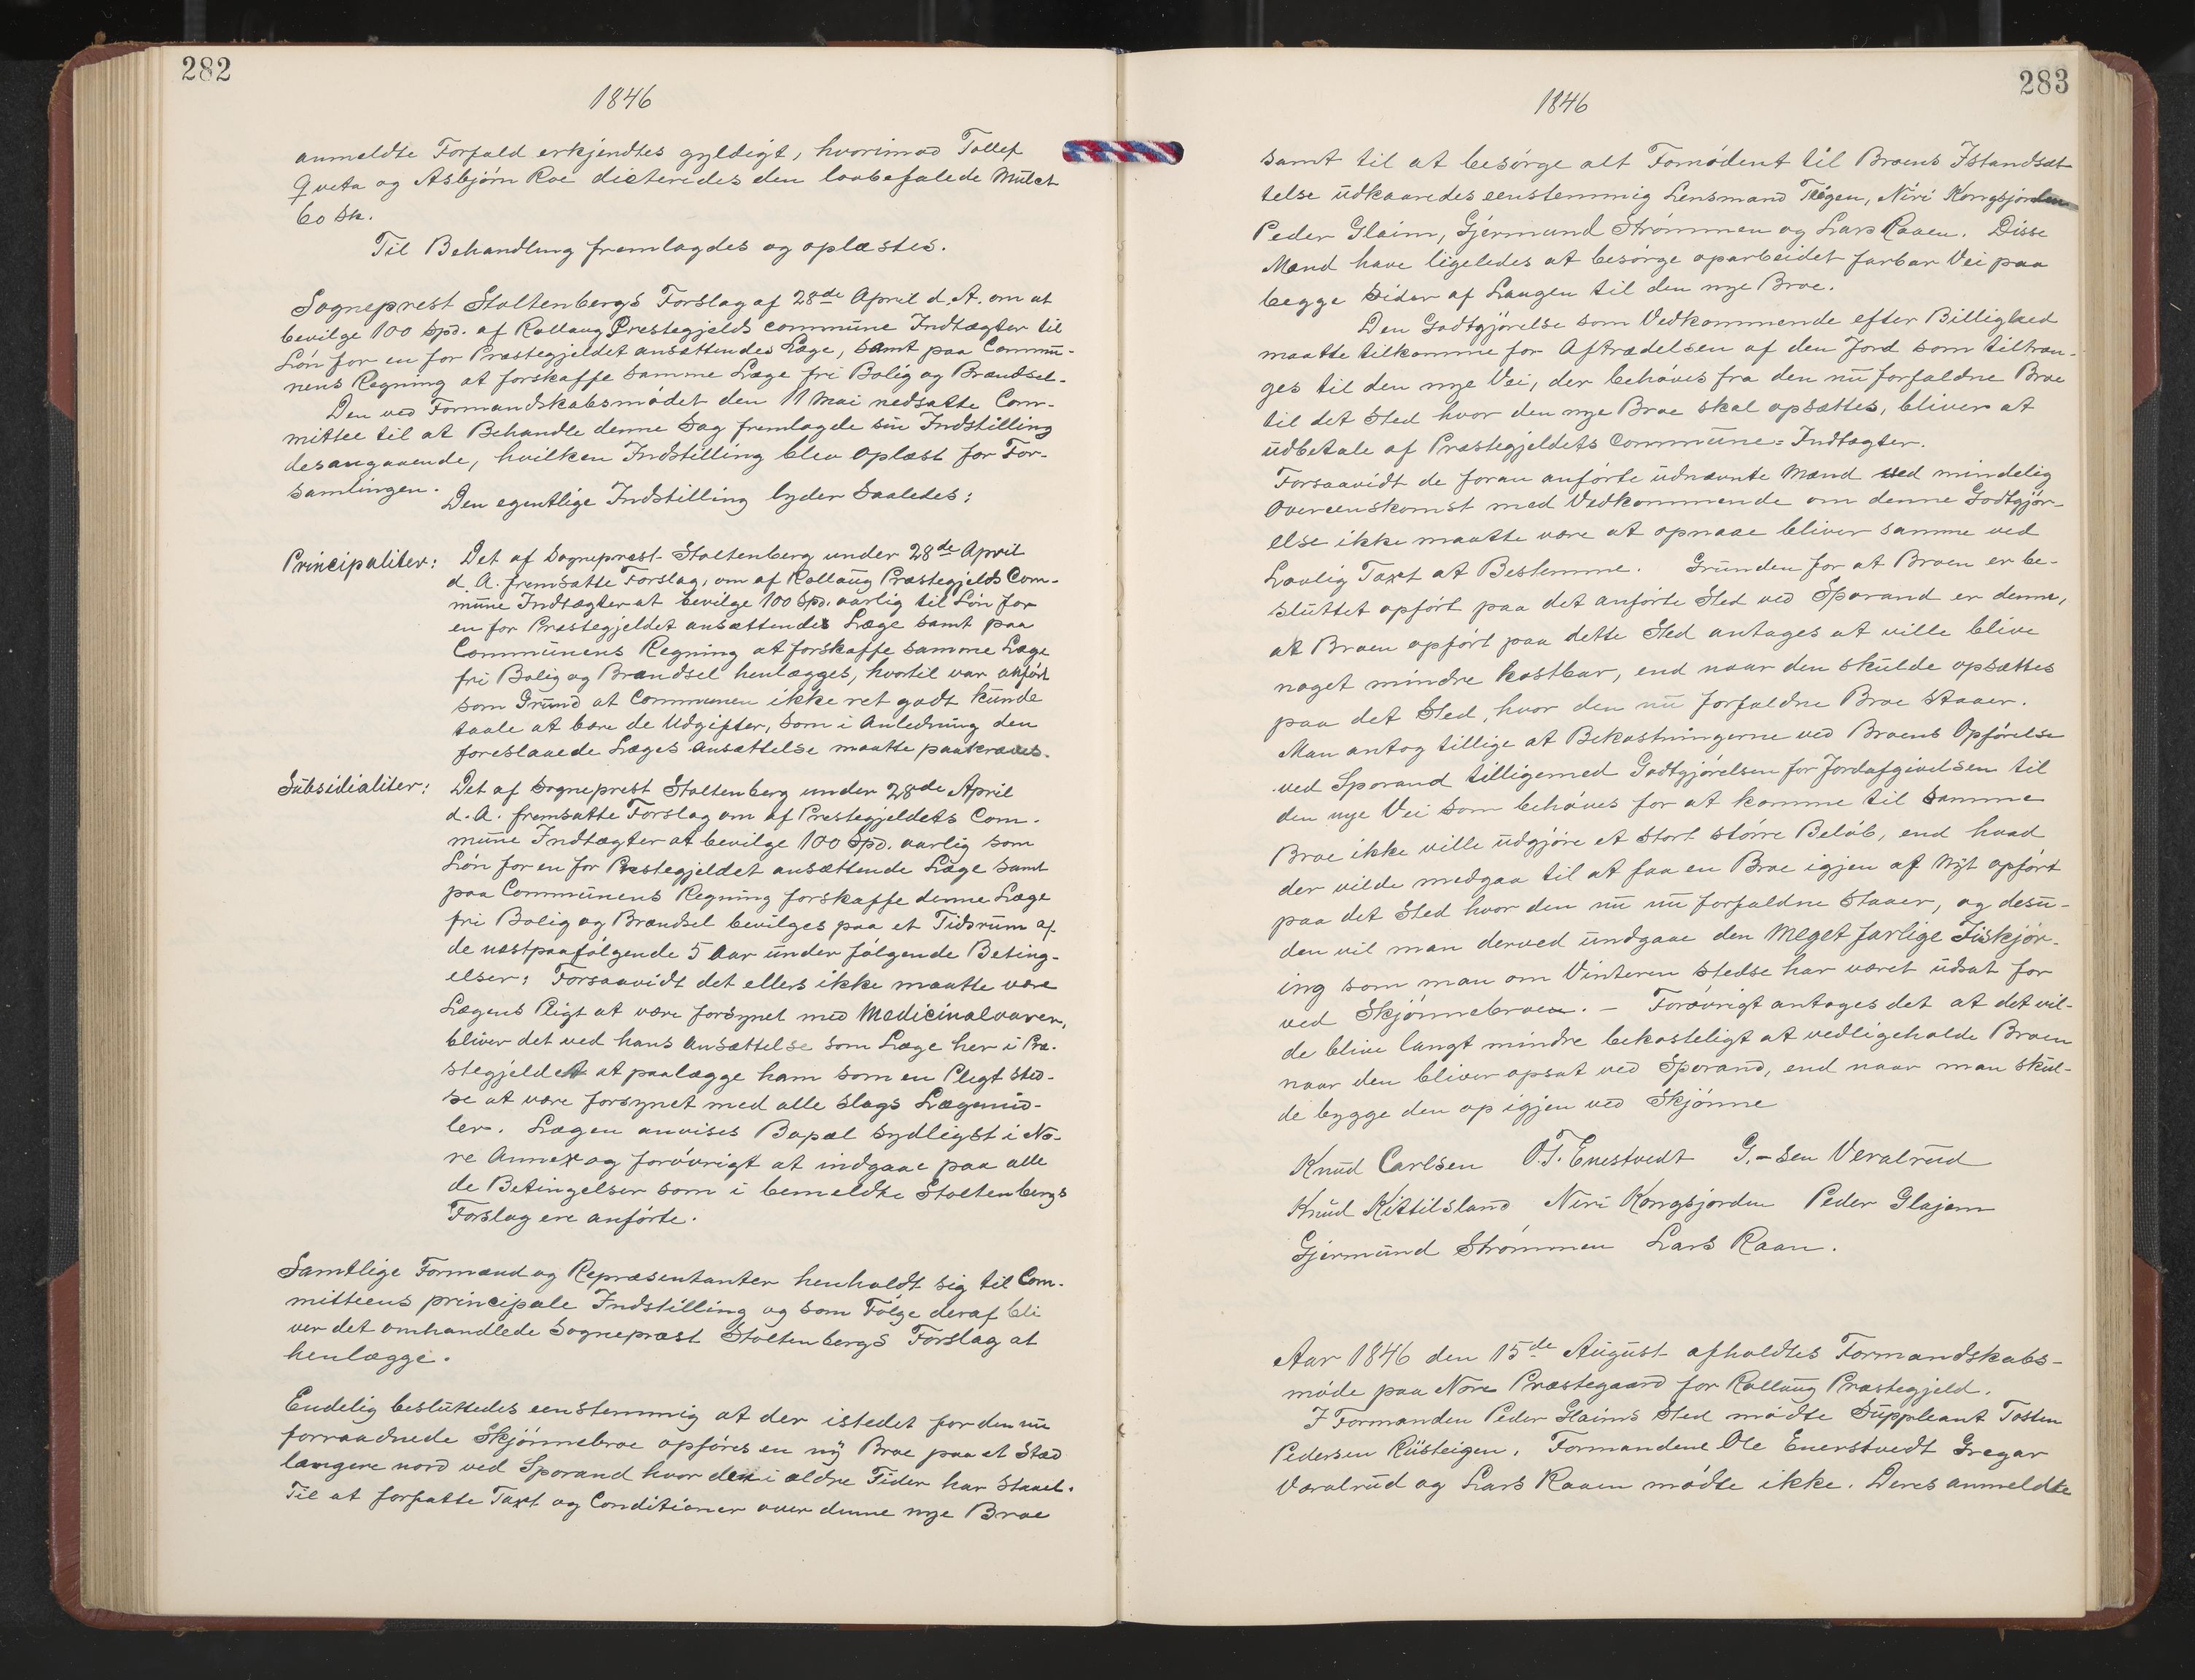 282
1846
anmeldte Forfald erkjendtes gyldigt, hvorimod Tollef
Qveta og Asbjørn Roe dicteredes den lovbefalede Mulct
60 Sk.
Til Behandling fremlagdes og oplæstes.
Sogneprest Stoltenbergs Forslag af 28de April d. A. om at
bevilge 100 Spd. af Rollaug Prestegjelds commune Indtægter til
Løn for en for Præstegjeldet ansættendes Læge, samt paa Commu-
nens Regning at forskaffe samme Læge fri Bolig og Brændsel.
Den ved Formandskabsmødet den 11 Mai nedsatte Com-
mittee til at Behandle denne Sag fremlagde sin Indstilling
desangaaende, hvilken Indstilling blev oplæst for For-
samlingen.
Den egentlige Indstilling lyder Saaledes:
Principaliter: Det af Sogneprest Stoltenberg under 28de April
d. A. fremsatte Forslag, om af Rollaug Præstegjelds Com-
mune Indtægter at bevilge 100 Spd. aarlig til Løn for
en for Præstegjeldet ansættendes Læge samt paa
Communens Regning at forskaffe samme Læge
fri Bolig og Brændsel henlægges, hvortil var anført
som Grund at Communen ikke ret godt kunde
taale at bære de Udgifter, som i Anledning den
foreslaaede Læges ansættelse maatte paakræves.
Subsidialiter: Det af Sogneprest Stoltenberg under 28de April
d. A. fremsatte Forslag om af Prestegjeldets Com-
mune Indtægter at bevilge 100 Spd. aarlig som
Løn for en for Prestegjeldet ansættende Læge samt
paa Communens Regning forskaffe denne Læge
fri Bolig og Brændsel bevilges paa et Tidsrum af
de næstpaafølgende 5 Aar under følgende Beting-
elser: Forsaavidt det ellers ikke maatte være
Lægens Pligt at være forsynet med Medicinalvarer,
bliver det ved hans Ansættelse som Læge her i Præ-
stegjeldet at paalægge ham som en Pligt sted-
se at være forsynet med alle slags Lægemid-
ler. Lægen anvises Bopæl sydligst i No-
re Annex og forøvrigt at indgaae paa alle
de Betingelser som i bemeldte Stoltenbergs
Forslag ere anførte.
Samtlige Formænd og Repræsentanter henholdt sig til Com-
mitteens principale Indstilling og som Følge deraf bli
ver det omhandlede Sognepræst Stoltenbergs Forslag at
henlægge.
Endelig besluttedes eenstemmig at der istedet for den nu
forraadnede Skjønnebroe opføres en ny Broe paa et Sted
længere nord ved Sporand hvor den i ældre Tider har Staaet.
Til at forfatte Taxt og Conditioner over denne nye Broe
283
1846
samt til at besørge alt Fornødent til Broens Istandsæt
telse udkaaredes eenstemmig Lensmand Teigen, Niri Kongsjorden
Peder Glaim, Gjermund Strømmen og Lars Raaen. Disse
Mænd have ligeledes at besørge oparbeidet farbar Vei paa
begge Sider af Laagen til den nye Broe.
Den Godtgjørelse som Vedkommende efter Billighed
maatte tilkomme for Aftrædelsen af den Jord som tiltræn-
ges til den nye Vei, der behøves fra den nu forfaldne Broe
til det Sted hvor den nye Broe skal opsættes, bliver at
udbetale af Præstegjeldets Commune-Indtægter.
Forsaavidt de foran anførte udnævnte Mænd ved mindelig
Overeenskomst med Vedkommende om denne Godtgjør-
else ikke maatte være at opnaae bliver samme ved
Lovlig Taxt at Bestemme. Grunden for at Broen er be-
sluttet opført paa det anførte Sted ved Sporand er denne,
at Broen opført paa dette Sted antages at ville blive
noget mindre kostbar, end naar den skulde opsættes
paa det Sted, hvor den nu forfaldne Broe staaer.
Man antog tillige at Bekostningerne ved Broens Opførelse
ved Sporand tilligemed Godtgjørelsen for Jordafgivelsen til
den nye Vei som behøves for at komme til samme
Broe ikke ville udgjøre et stort større Beløb, end hvad
der vilde medgaa til at faa en Broe igjen af Nyt opført
paa det Sted hvor den nu nu forfaldne staaer, og desu-
den vil man derved undgaae den meget farlige Fiskjør-
ing som man om Vinteren stedse har været udsat for
ved Skjønnebroen. - Forøvrigt antages det at det vil-
de blive langt mindre bekosteligt at vedligeholde Broen
naar den bliver opsat ved Sporand, end naar man skul-
de bygge den op igjen ved Skjønne
Knud Carlsen O. T. Enestvedt G. - sen Veralrud
Knud Kittilsland Niri Kongsjorden Peder Glajem
Gjermund Strømmen Lars Raan.
Aar 1846 den 15de August afholdtes Formandskabs-
møde paa Nore Præstegaard for Rollaug Præstegjeld.
I Formanden Peder Glaims Sted mødte Suppleant Tosten
Pedersen Rusteigen. Formandene Ole Enerstvedt Gregar
Væralrud og Lars Raaen mødte ikke. Deres anmeldte